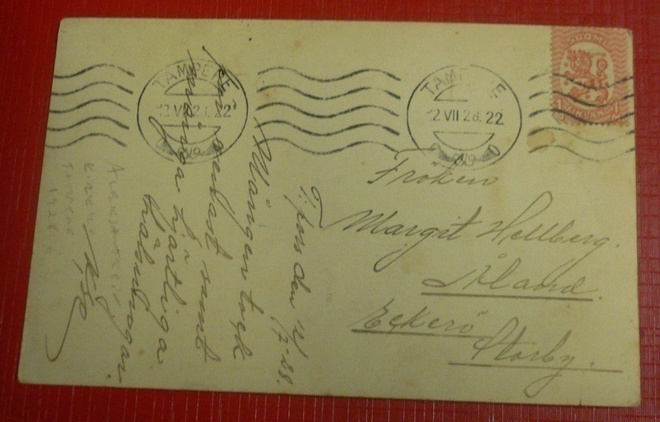 TAMPERE
12.VII.28.22
TAMPERE
12.VII 28.22
SUOMI
Fröken
Margit Hellberg.
Åland.
Eckerö
Storby.
T:fors den 11/7-28.
Mången tack
samt
många hjärtliga
hälsningar.
TAMPERE
1928